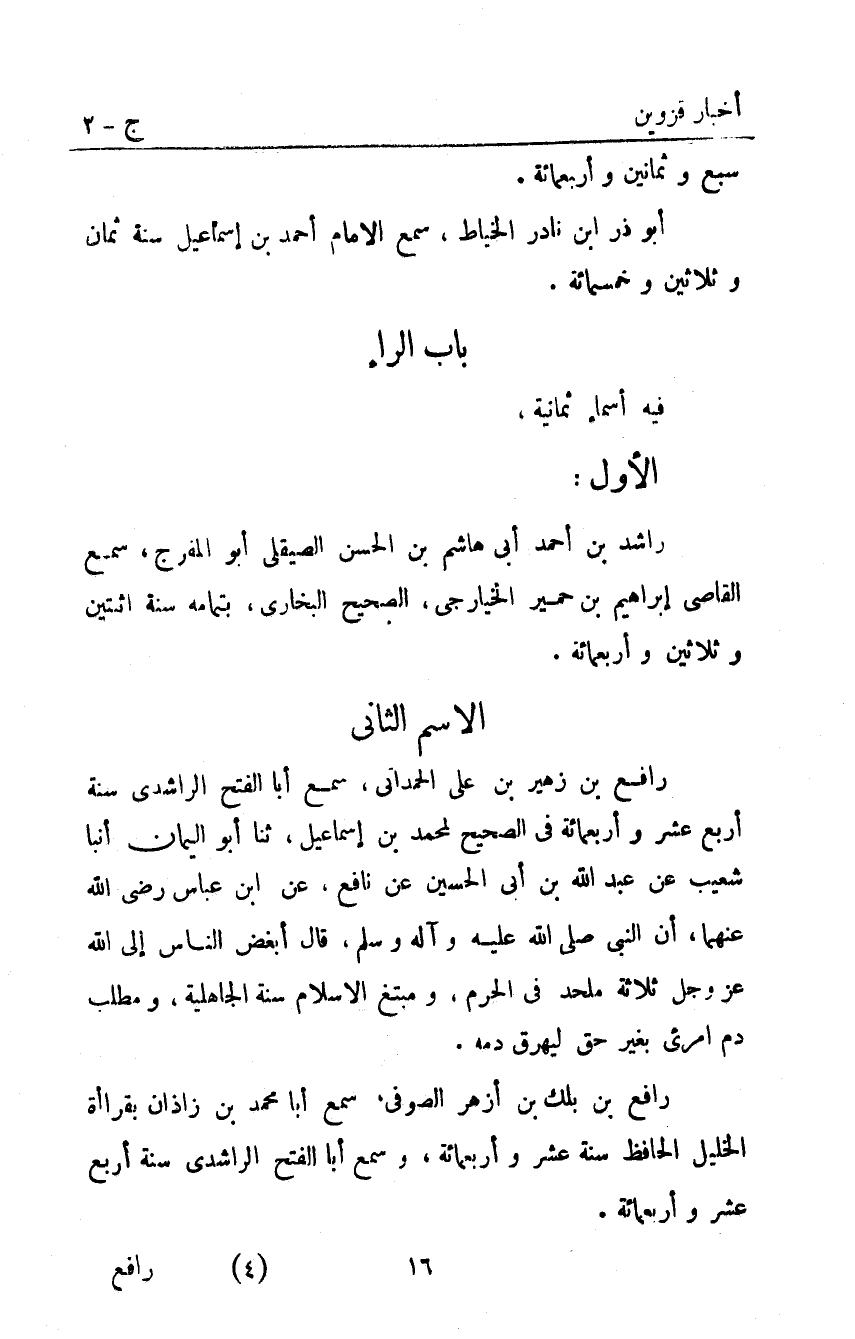 أخبار قزوين ج - ٢
سبع و ثمانين و أربعمائة .
أبو ذر ابن نادر الخياط ، سمع الامام أحمد بن إسماعيل سنة ثمان
و ثلاثين و خمسمائة .
باب الراء
فيه أسماء ثمانية ،
الأول :
راشد بن أحمد أبى هاشم بن الحسن الصيقلى أبو المفرج ، سمع
القاصى إبراهيم بن حمير الخيارجى ، الصحيح البخارى ، بتمامه سنة اثنتين
و ثلاثين و أربعمائة .
الاسم الثانى
رافع بن زهير بن على الحمدانى ، سمع أبا الفتح الراشدى سنة
أربع عشر و أربعمائة فى الصحيح لمحمد بن إسماعيل ، ثنا أبو اليمان أنبا
شعيب عن عبد الله بن أبى الحسين عن نافع ، عن ابن عباس رضى الله
عنهما ، أن النبي صلى الله عليه و آله و سلم ، قال أبغض الناس إلى الله
عز وجل ثلاثة ملحد فى الحرم ، و مبتغ الاسلام سنة الجاهلية ، و مطلب
دم امرئ بغير حق ليهرق دمه .
رافع بن بلك بن أزهر الصوفى ، سمع أبا محمد بن زاذان بقراأة
الخليل الحافظ سنة عشر و أربعمائة ، و سمع أبا الفتح الراشدى سنة أربع
عشر و أربعمائة .
١٦ (٤) رافع